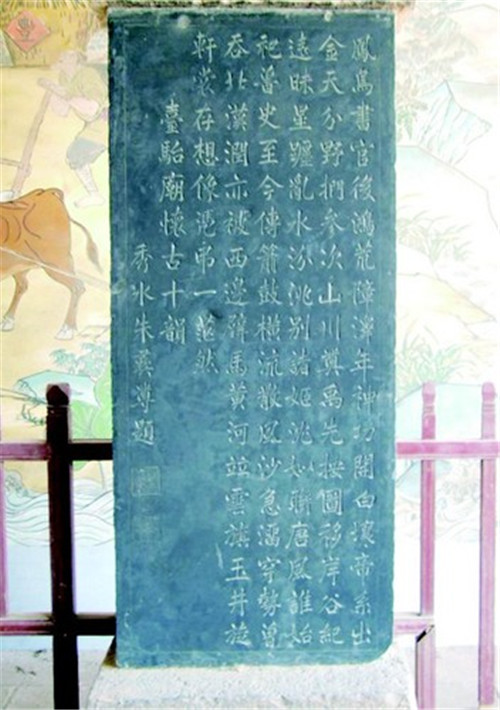 鳳鳥書官後鴻荒障澤年神功開白壤帝系出
金天分野捫參次山川奠禹先按圖移岸谷紀
遠昧星躔亂水汾洮別諸姬沈姒聯唐風誰始
祀魯史至今傳簫鼓橫流散風沙急溜穿勢曾
吞北漢潤亦被西邊馬黃河竝雲旗玉井旋
軒裳存想像憑弔一茫然
臺駘廟懷古十韻
秀水朱彝尊題